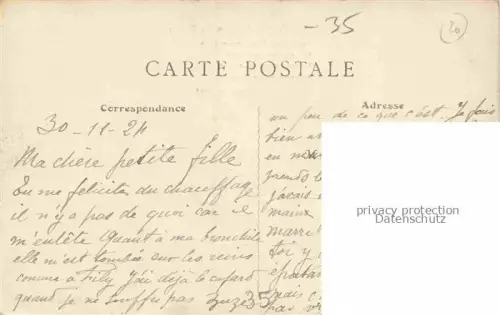 -35
20
CARTE POSTALE
Correspondance
Adresse
30-11-24
Ma chère petite fille
Tu me felicites du chauffage
il n'y a pas de quoi car il
m'entête Quant à ma bronchite
elle m'est tombée sur les reins
comme a Fily J'ai déjà le cafard
quand je ne souffre pas
35
un peu de ce que c'est. Je fais
bien
en
prends
j'avais
maux
marre
toi y
pas
privacy protection
Datenschutz